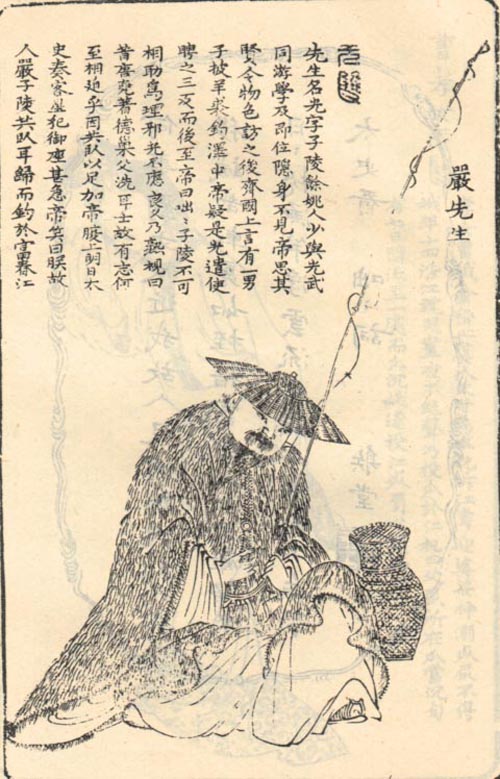 嚴先生
先生名光字子陵餘姚人少與光武
同游學及即位隱身不見帝思其
賢令物色訪之後齊國上言有一男
子披羊裘釣澤中帝疑是光遣使
聘之三反而後至帝曰咄〻子陵不可
相助爲理邪光不應良久乃熟視曰
昔唐堯著德巢父洗耳士故有志何
至相迫乎因共臥以足加帝腹上明日太
史奏客星犯御座甚急帝笑曰朕故
人嚴子陵共臥耳歸而釣於富春江